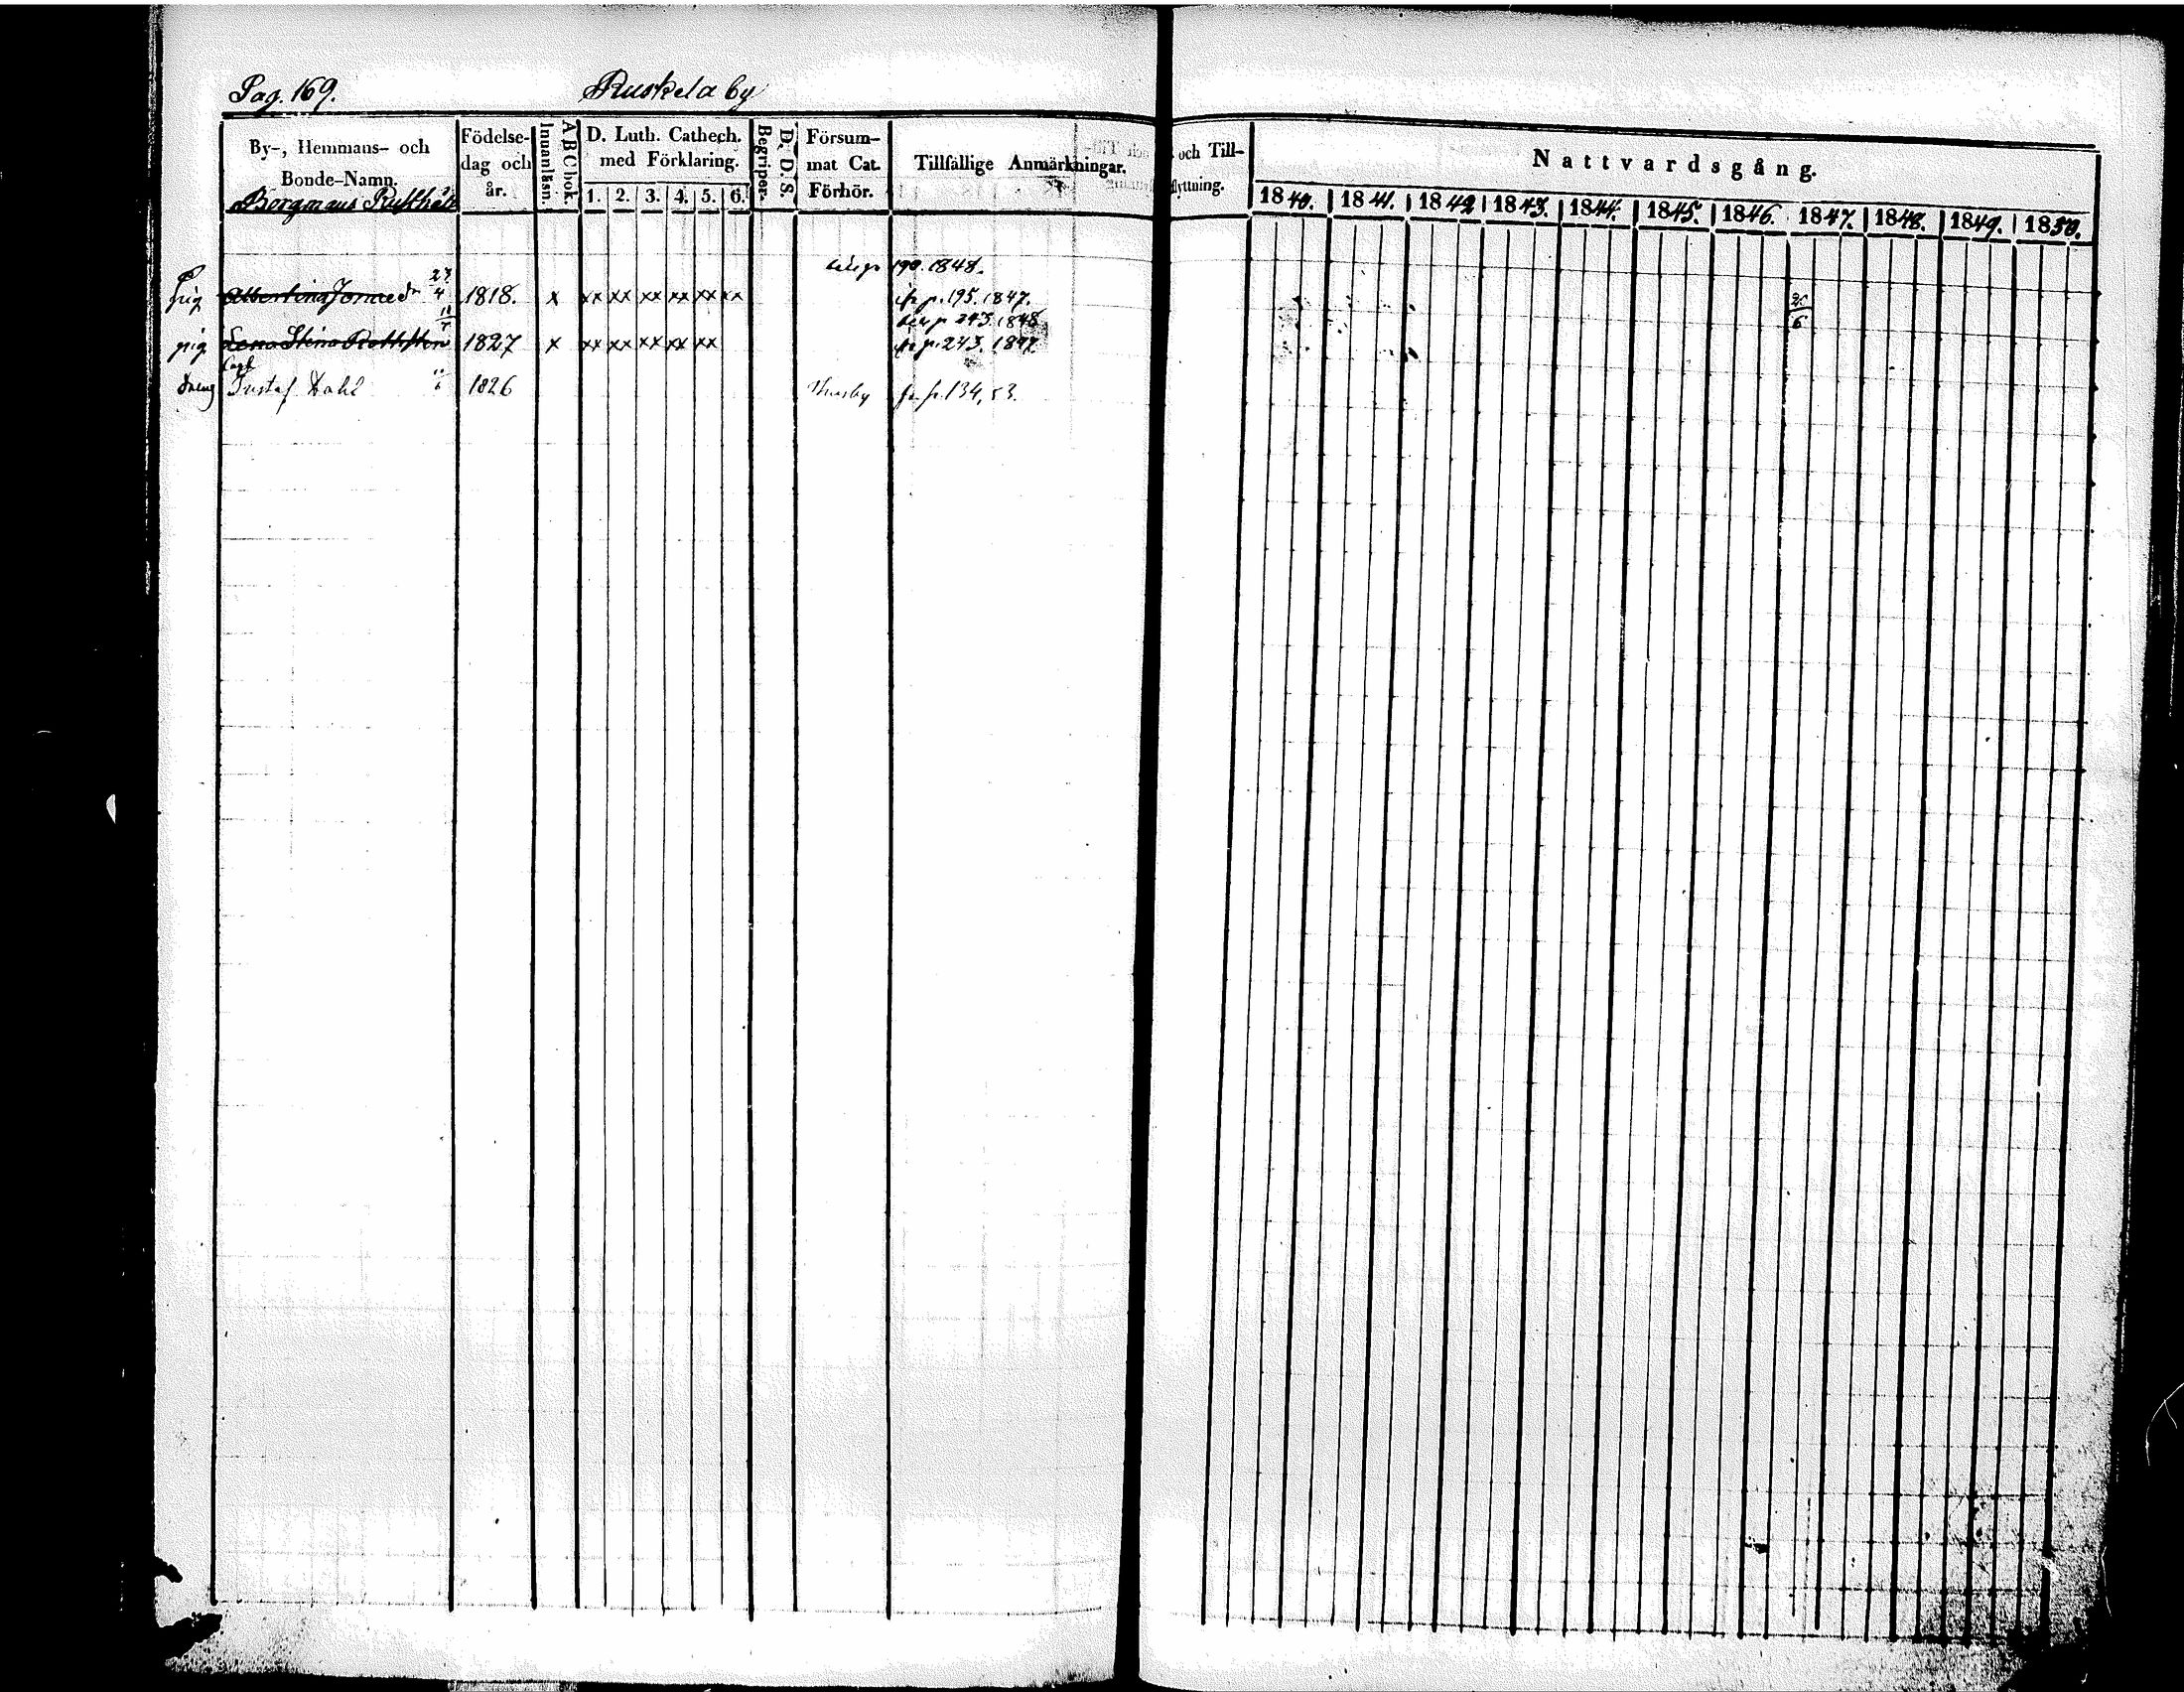 Pag. 169. Ruskela by
By-, Hemmans- och Bonde-Namn. Födelse-dag och år. Innanläsn. ABC bok. D. Luth. Cathech. med Förklaring. 1. 2. 3. 4. 5. 6. Begriper. D. D. S. Försum-mat Cat. Förhör. Tillfällige Anmärkningar. och Till- flyttning. Nattvardsgång.
Borgmans Rusthåll
1840. 1841. 1842 1843. 1844. 1845. 1846. 1847. 1848. 1849. 1850.
190. 1848.
pig Albertina dr 23/4 1818. x xx xx xx xx xx xx fr p. 195. 1847.
p 243. 1848
pig Lena Stina 1827 x xx xx xx xx xx fr p. 243. 1847
dräng Gustaf Dahl 1826 Thusby fr p. 134, 53.